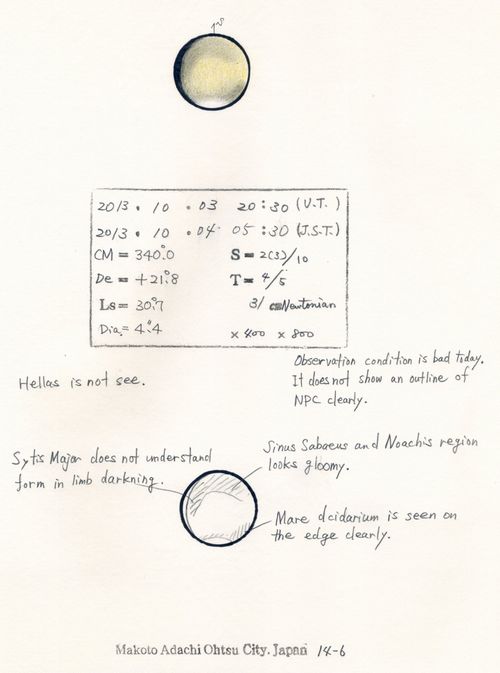 2013. 10 .03 20:30 (U.T.)
2013. 10 .04 05:30 (J.S.T.)
CM = 340°.0 S = 2(3)/10
De = +21°.8 T = 4/5
Ls = 30°.7 31 cm Newtonian
Dia = 4".4 ×400 ×800
Observation condition is bad today.
It does not show an outline of
NPC clearly.
Hellas is not see.
Sinus Sabaeus and Noachis region
looks gloomy.
Sytis Major does not understand
form in limb darkning.
Mare dcidarium is seen on
the edge clearly.
Makoto Adachi Ohtsu City. Japan 14-6